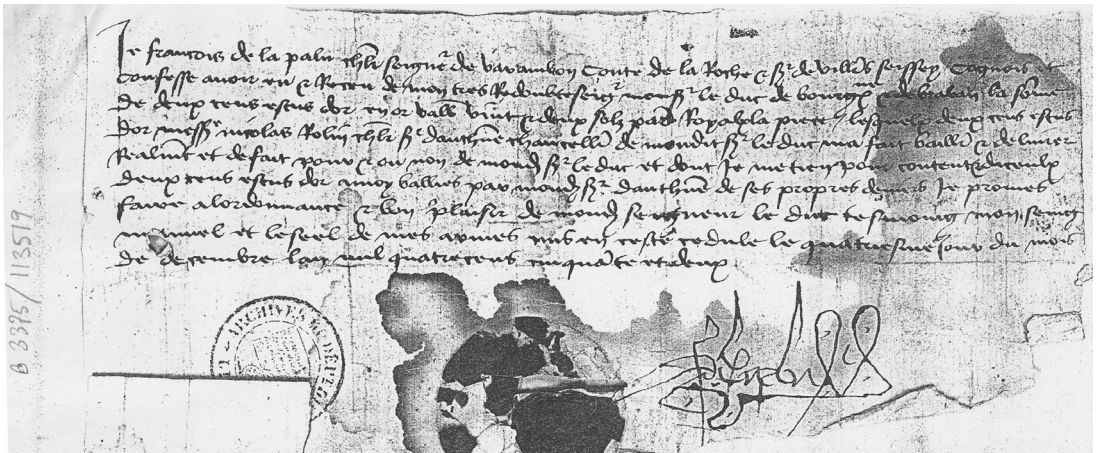 Je francois de la palu chlr seigneʳ de varambon Conte de la Roche & sʳ de villeʳs seissey Cognois et
Confesse avoir eu & Receu de mon tres Redoubte seigʳ monsʳ le duc de bourgᵉ & de braban la som̄e
De deux cens escus dor en or vall vint & deux solz par Royal la piece lesquelx deux cens escus
Dor messʳᵉ nicolas Rolin chlr sʳ dauthūe chancellʳ de mondit sʳ le duc ma fait baillʳ & delivrer
Realmēt et de fait pour & ou non de mond sʳ le duc et dont Je me tien pour content & diceulx
deux cens escus dor a moy baillies par mond sʳ dauthūe de ses propres deniers Je promes
faire a lordonnance & bon plaisir de mond seigneur le duc tesmoing mon seing
manuel et le seel de mes armes mis en ceste cedule le quatriesme Jour du mois
de decembre lan mil quatrecens cinquāte et deux
ARCHIVES DU DÉP
B 3395/113519